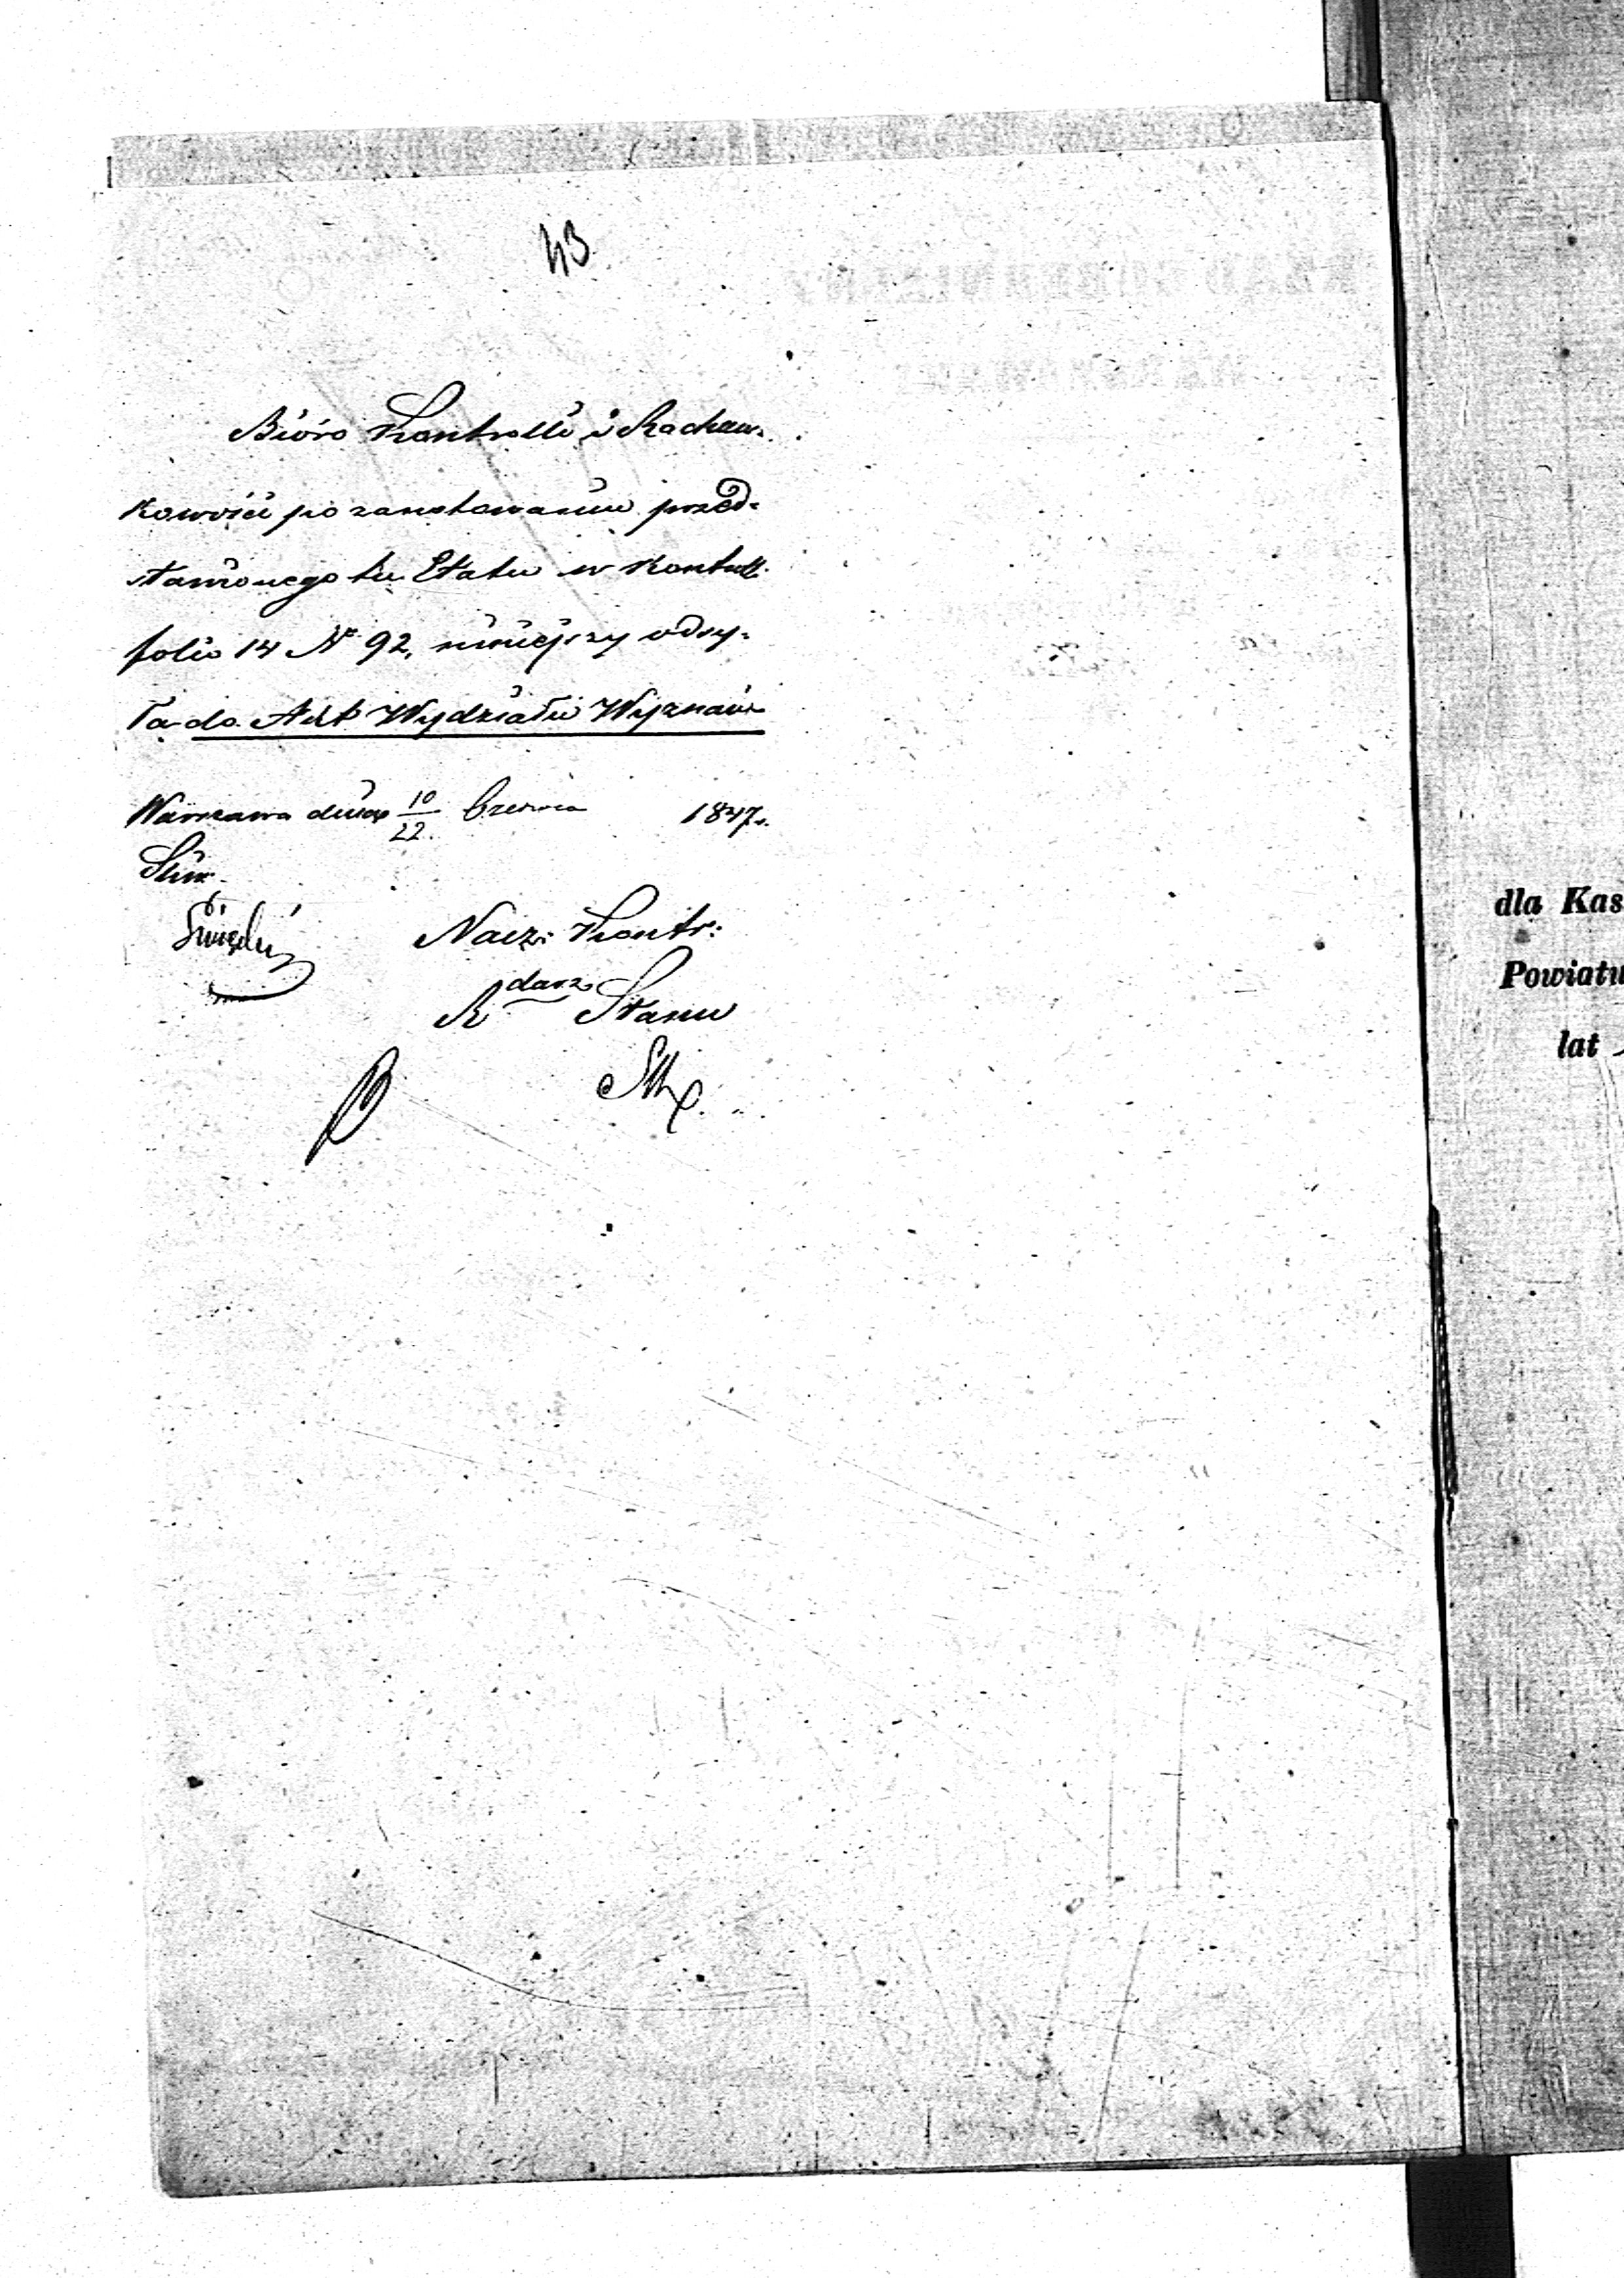 43
Bióro Kontrolli i Rachun-
kowości po zanotowaniu przed-
stawionego tu Etatu w Kontroll.
folio 14 Nº 92, niniejszy odsy-
ła do Akt Wydziału Wyznań
Warszawa dnia 10/22 Czerwca 1847 r.
Nacz: Kontr:
R darz Stanu
dla Kas
Powiatu
lat